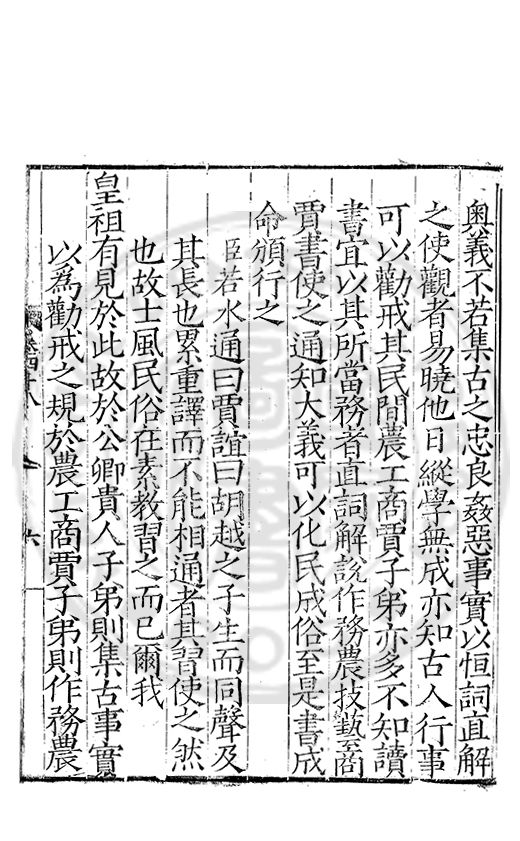 奧義不若集古之忠良姦惡事實以恒詞直解
之使觀者易曉他日縱學無成亦知古人行事
可以勸戒其民間農工商賈子弟亦多不知讀
書宜以其所當務者直詞解説作務農技藝商
賈書使之通知大義可以化民成俗至是書成
命頒行之
臣若水通曰賈誼曰胡越之子生而同聲及
其長也累重譯而不能相通者其習使之然
也故士風民俗在素教習之而已爾我
皇祖有見於此故於公卿貴人子弟則集古事實
以爲勸戒之規於農工商賈子弟則作務農
卷四十八
六